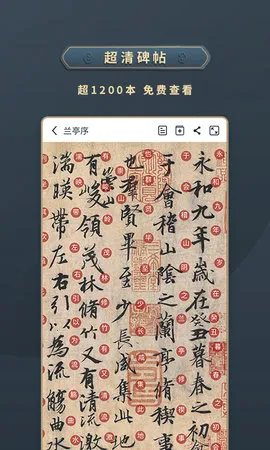 超清碑帖
超1200本 免费查看
兰亭序
永和九年歲在癸丑暮春之初
于會稽山陰之蘭亭脩稧事
也群賢畢至少長咸集此地
有崇山峻領茂林脩竹又有清流激
湍暎帶左右引以為流觴曲水